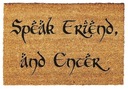 Speak Friend,
and Enter